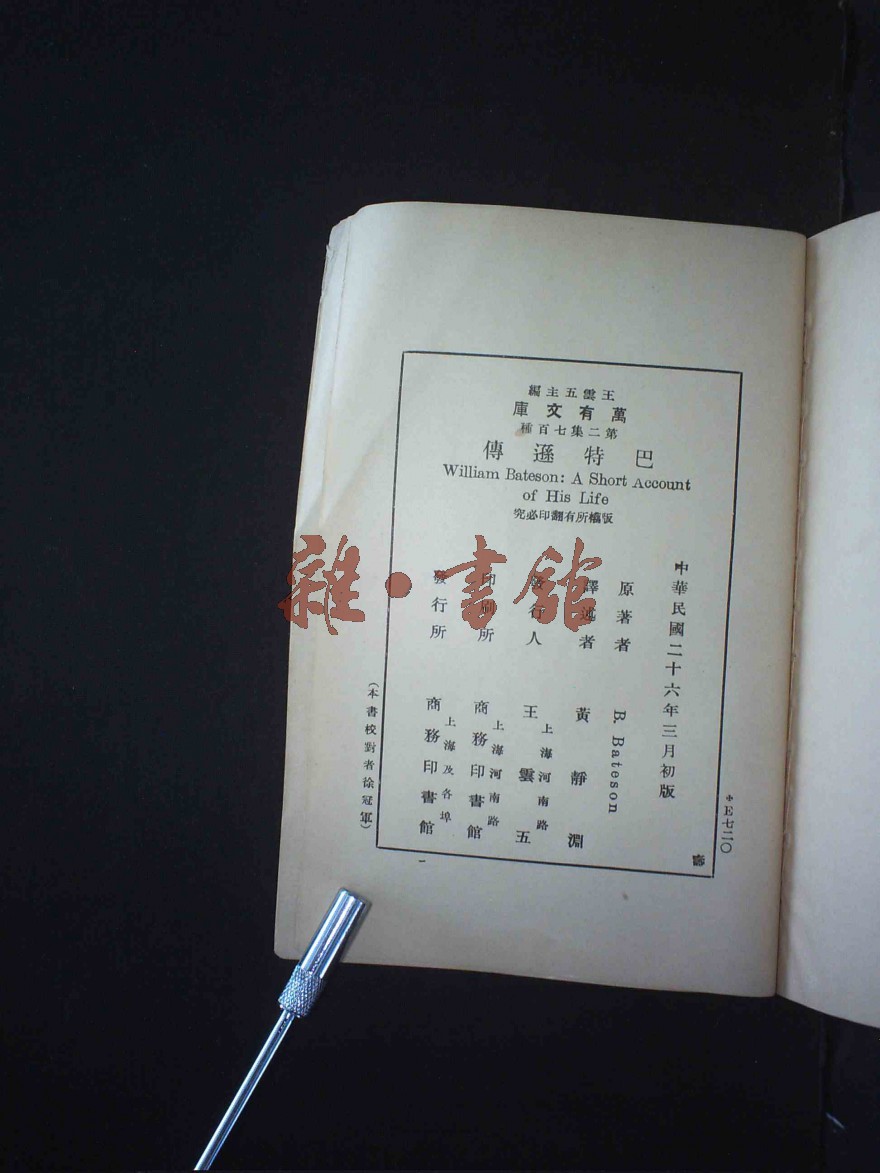 王雲五主編
萬有文庫
第二集七百種
巴特遜傳
William Bateson: A Short Account
of His Life
版權所有翻印必究
中華民國二十六年三月初版
原著者 B. Bateson
譯述者 黃靜淵
發行人 王雲五
上海河南路
印刷所 商務印書館
上海河南路
發行所 商務印書館
上海及各埠
(本書校對者徐冠軍)
E七二〇
一
雜·書館